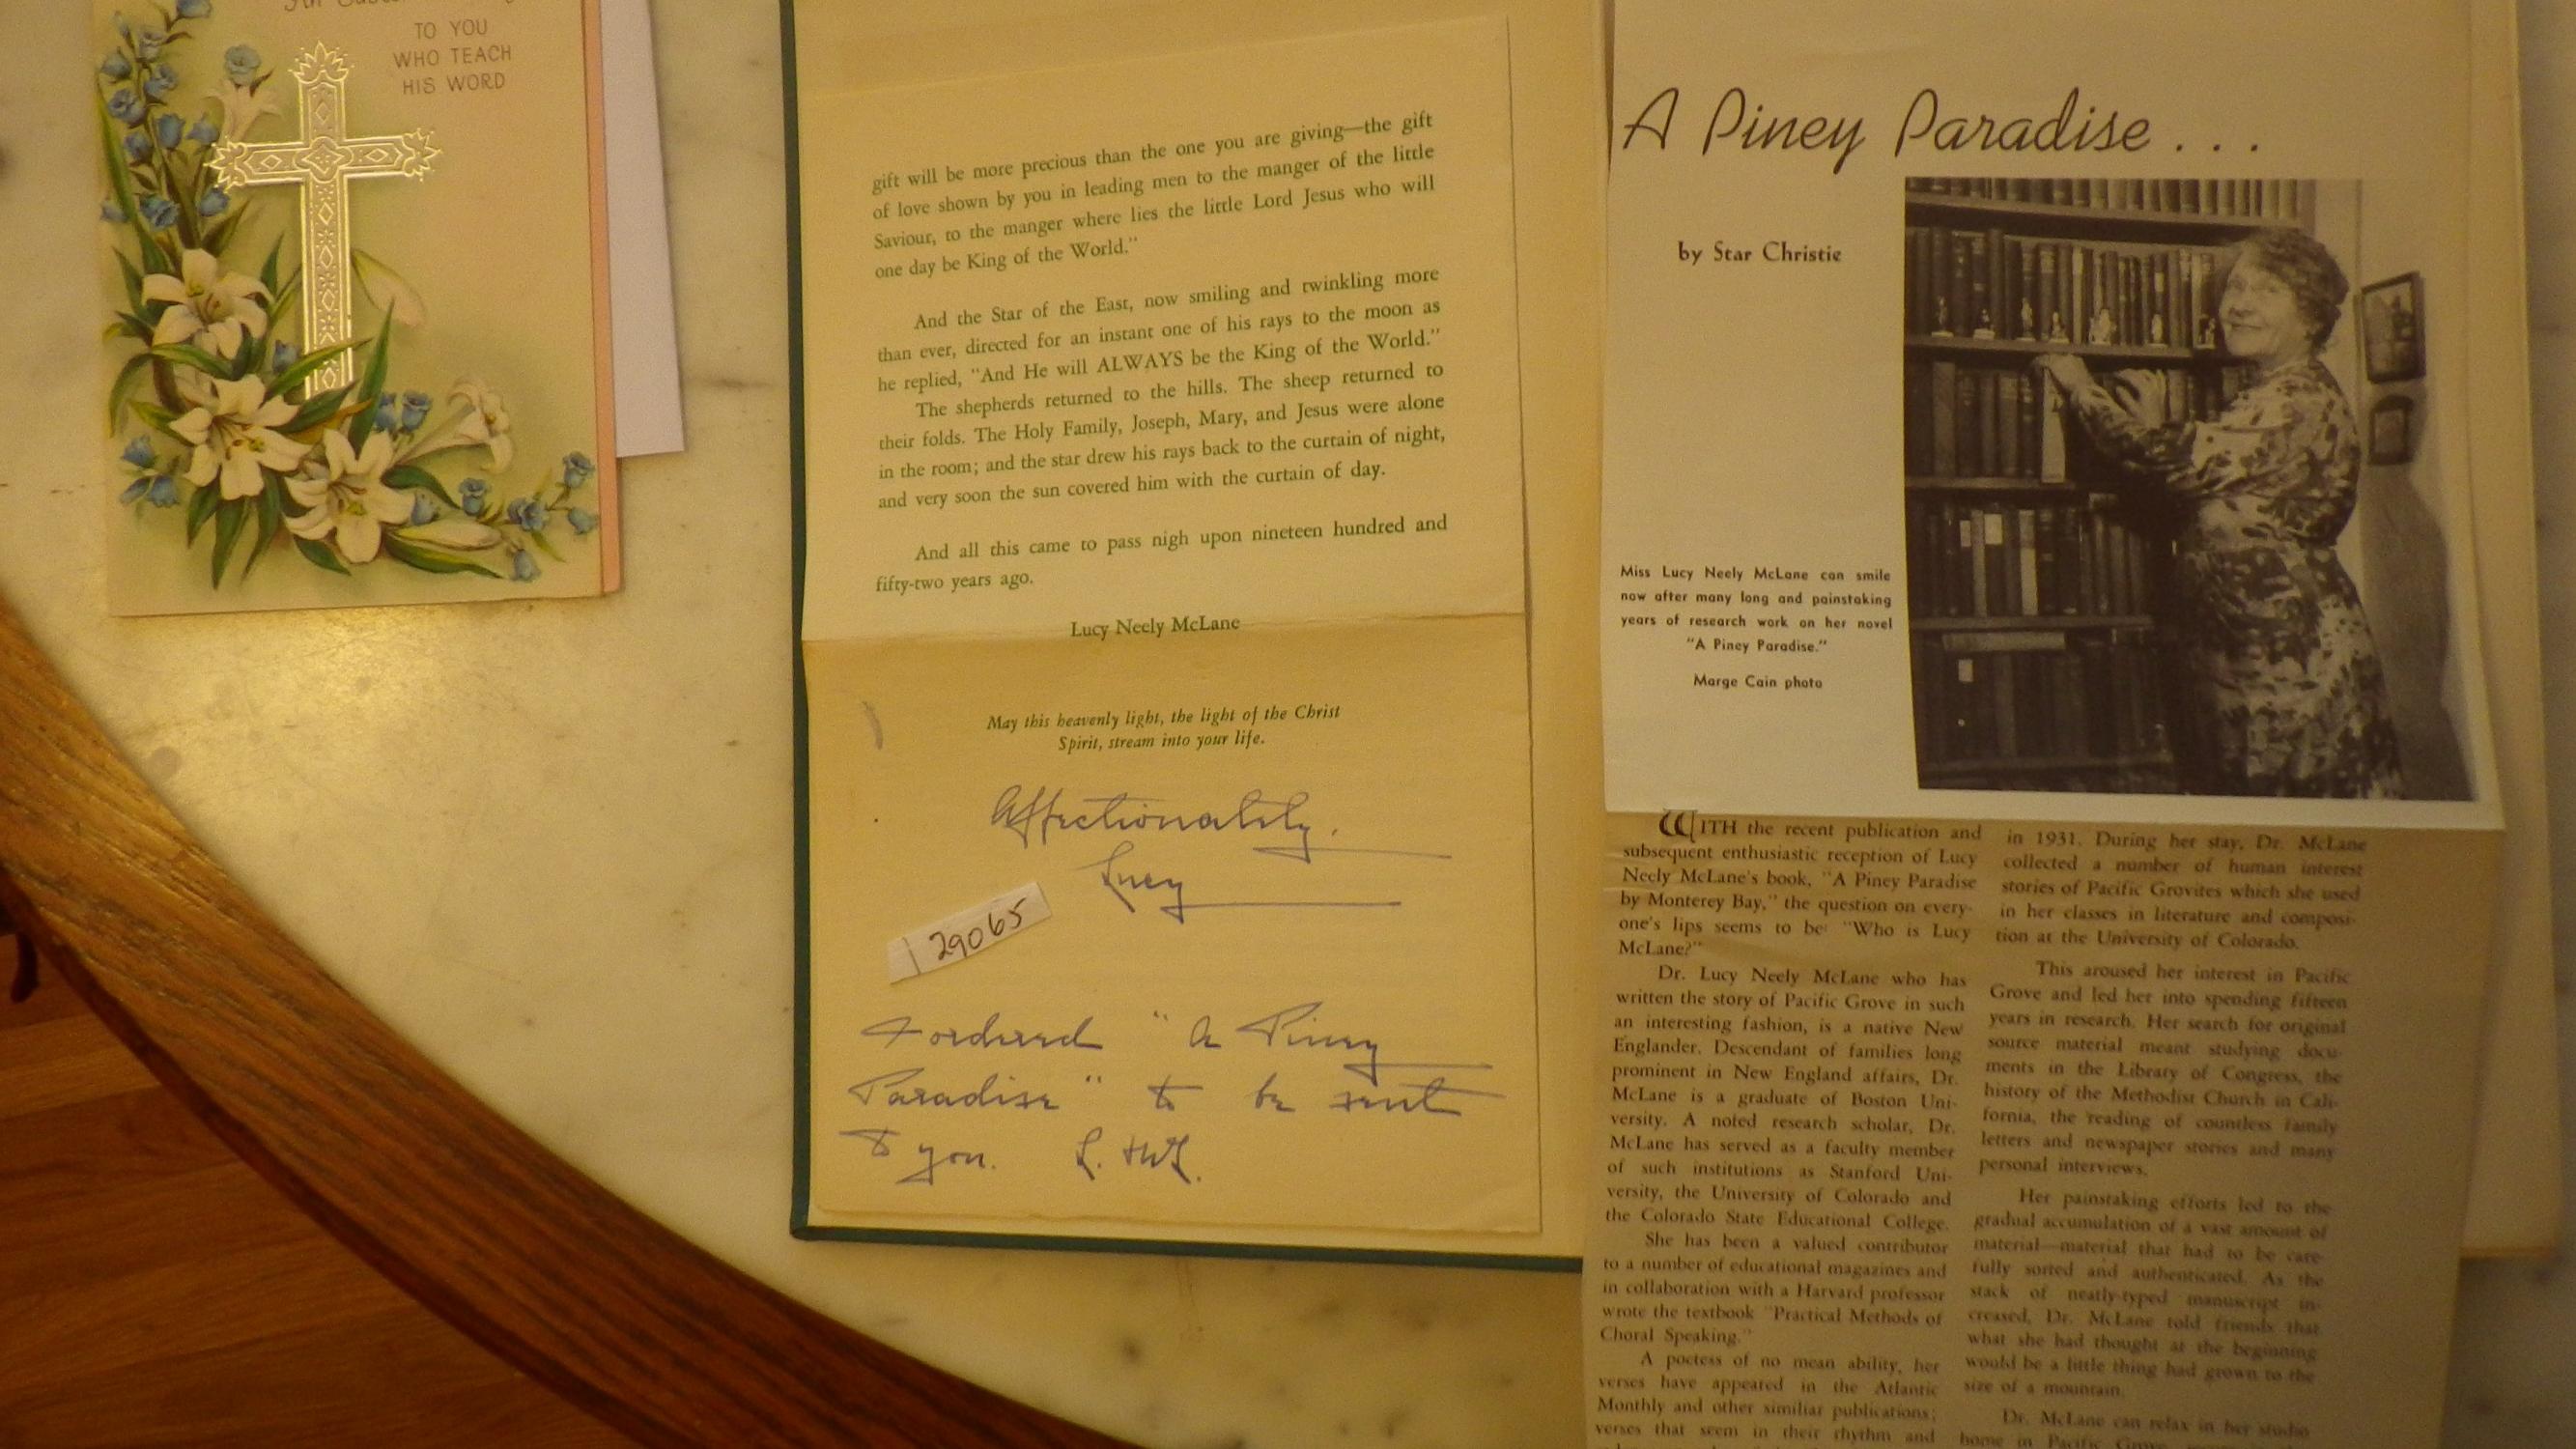 TO YOU
WHO TEACH
HIS WORD
gift will be more precious than the one you are giving—the gift
of love shown by you in leading men to the manger of the little
Saviour, to the manger where lies the little Lord Jesus who will
one day be King of the World."
And the Star of the East, now smiling and twinkling more
than ever, directed for an instant one of his rays to the moon as
he replied, "And He will ALWAYS be the King of the World."
The shepherds returned to the hills. The sheep returned to
their folds. The Holy Family, Joseph, Mary, and Jesus were alone
in the room; and the star drew his rays back to the curtain of night,
and very soon the sun covered him with the curtain of day.
And all this came to pass nigh upon nineteen hundred and
fifty-two years ago.
Lucy Neely McLane
May this heavenly light, the light of the Christ
Spirit, stream into your life.
Affectionately,
Lucy
29065
ordered "A Piney
Paradise" to be sent
to you. L.
A Piney Paradise . . .
by Star Christie
Miss Lucy Neely McLane can smile
now after many long and painstaking
years of research work on her novel
"A Piney Paradise."
Marge Cain photo
WITH the recent publication and
subsequent enthusiastic reception of Lucy
Neely McLane's book, "A Piney Paradise
by Monterey Bay," the question on every-
one's lips seems to be: "Who is Lucy
McLane?"
Dr. Lucy Neely McLane who has
written the story of Pacific Grove in such
an interesting fashion, is a native New
Englander. Descendant of families long
prominent in New England affairs, Dr.
McLane is a graduate of Boston Uni-
versity. A noted research scholar, Dr.
McLane has served as a faculty member
of such institutions as Stanford Uni-
versity, the University of Colorado and
the Colorado State Educational College.
She has been a valued contributor
to a number of educational magazines and
in collaboration with a Harvard professor
wrote the textbook "Practical Methods of
Choral Speaking."
A poetess of no mean ability, her
verses have appeared in the Atlantic
Monthly and other similiar publications;
verses that seem in their rhythm and
in 1931. During her stay, Dr. McLane
collected a number of human interest
stories of Pacific Grovites which she used
in her classes in literature and composi-
tion at the University of Colorado.
This aroused her interest in Pacific
Grove and led her into spending fifteen
years in research. Her search for original
source material meant studying docu-
ments in the Library of Congress, the
history of the Methodist Church in Cali-
fornia, the reading of countless family
letters and newspaper stories and many
personal interviews.
Her painstaking efforts led to the
gradual accumulation of a vast amount of
material—material that had to be care-
fully sorted and authenticated. As the
stack of neatly-typed manuscript in-
creased, Dr. McLane told friends that
what she had thought at the beginning
would be a little thing had grown to the
size of a mountain.
Dr. McLane can relax in her studio
home in Pacific Grove